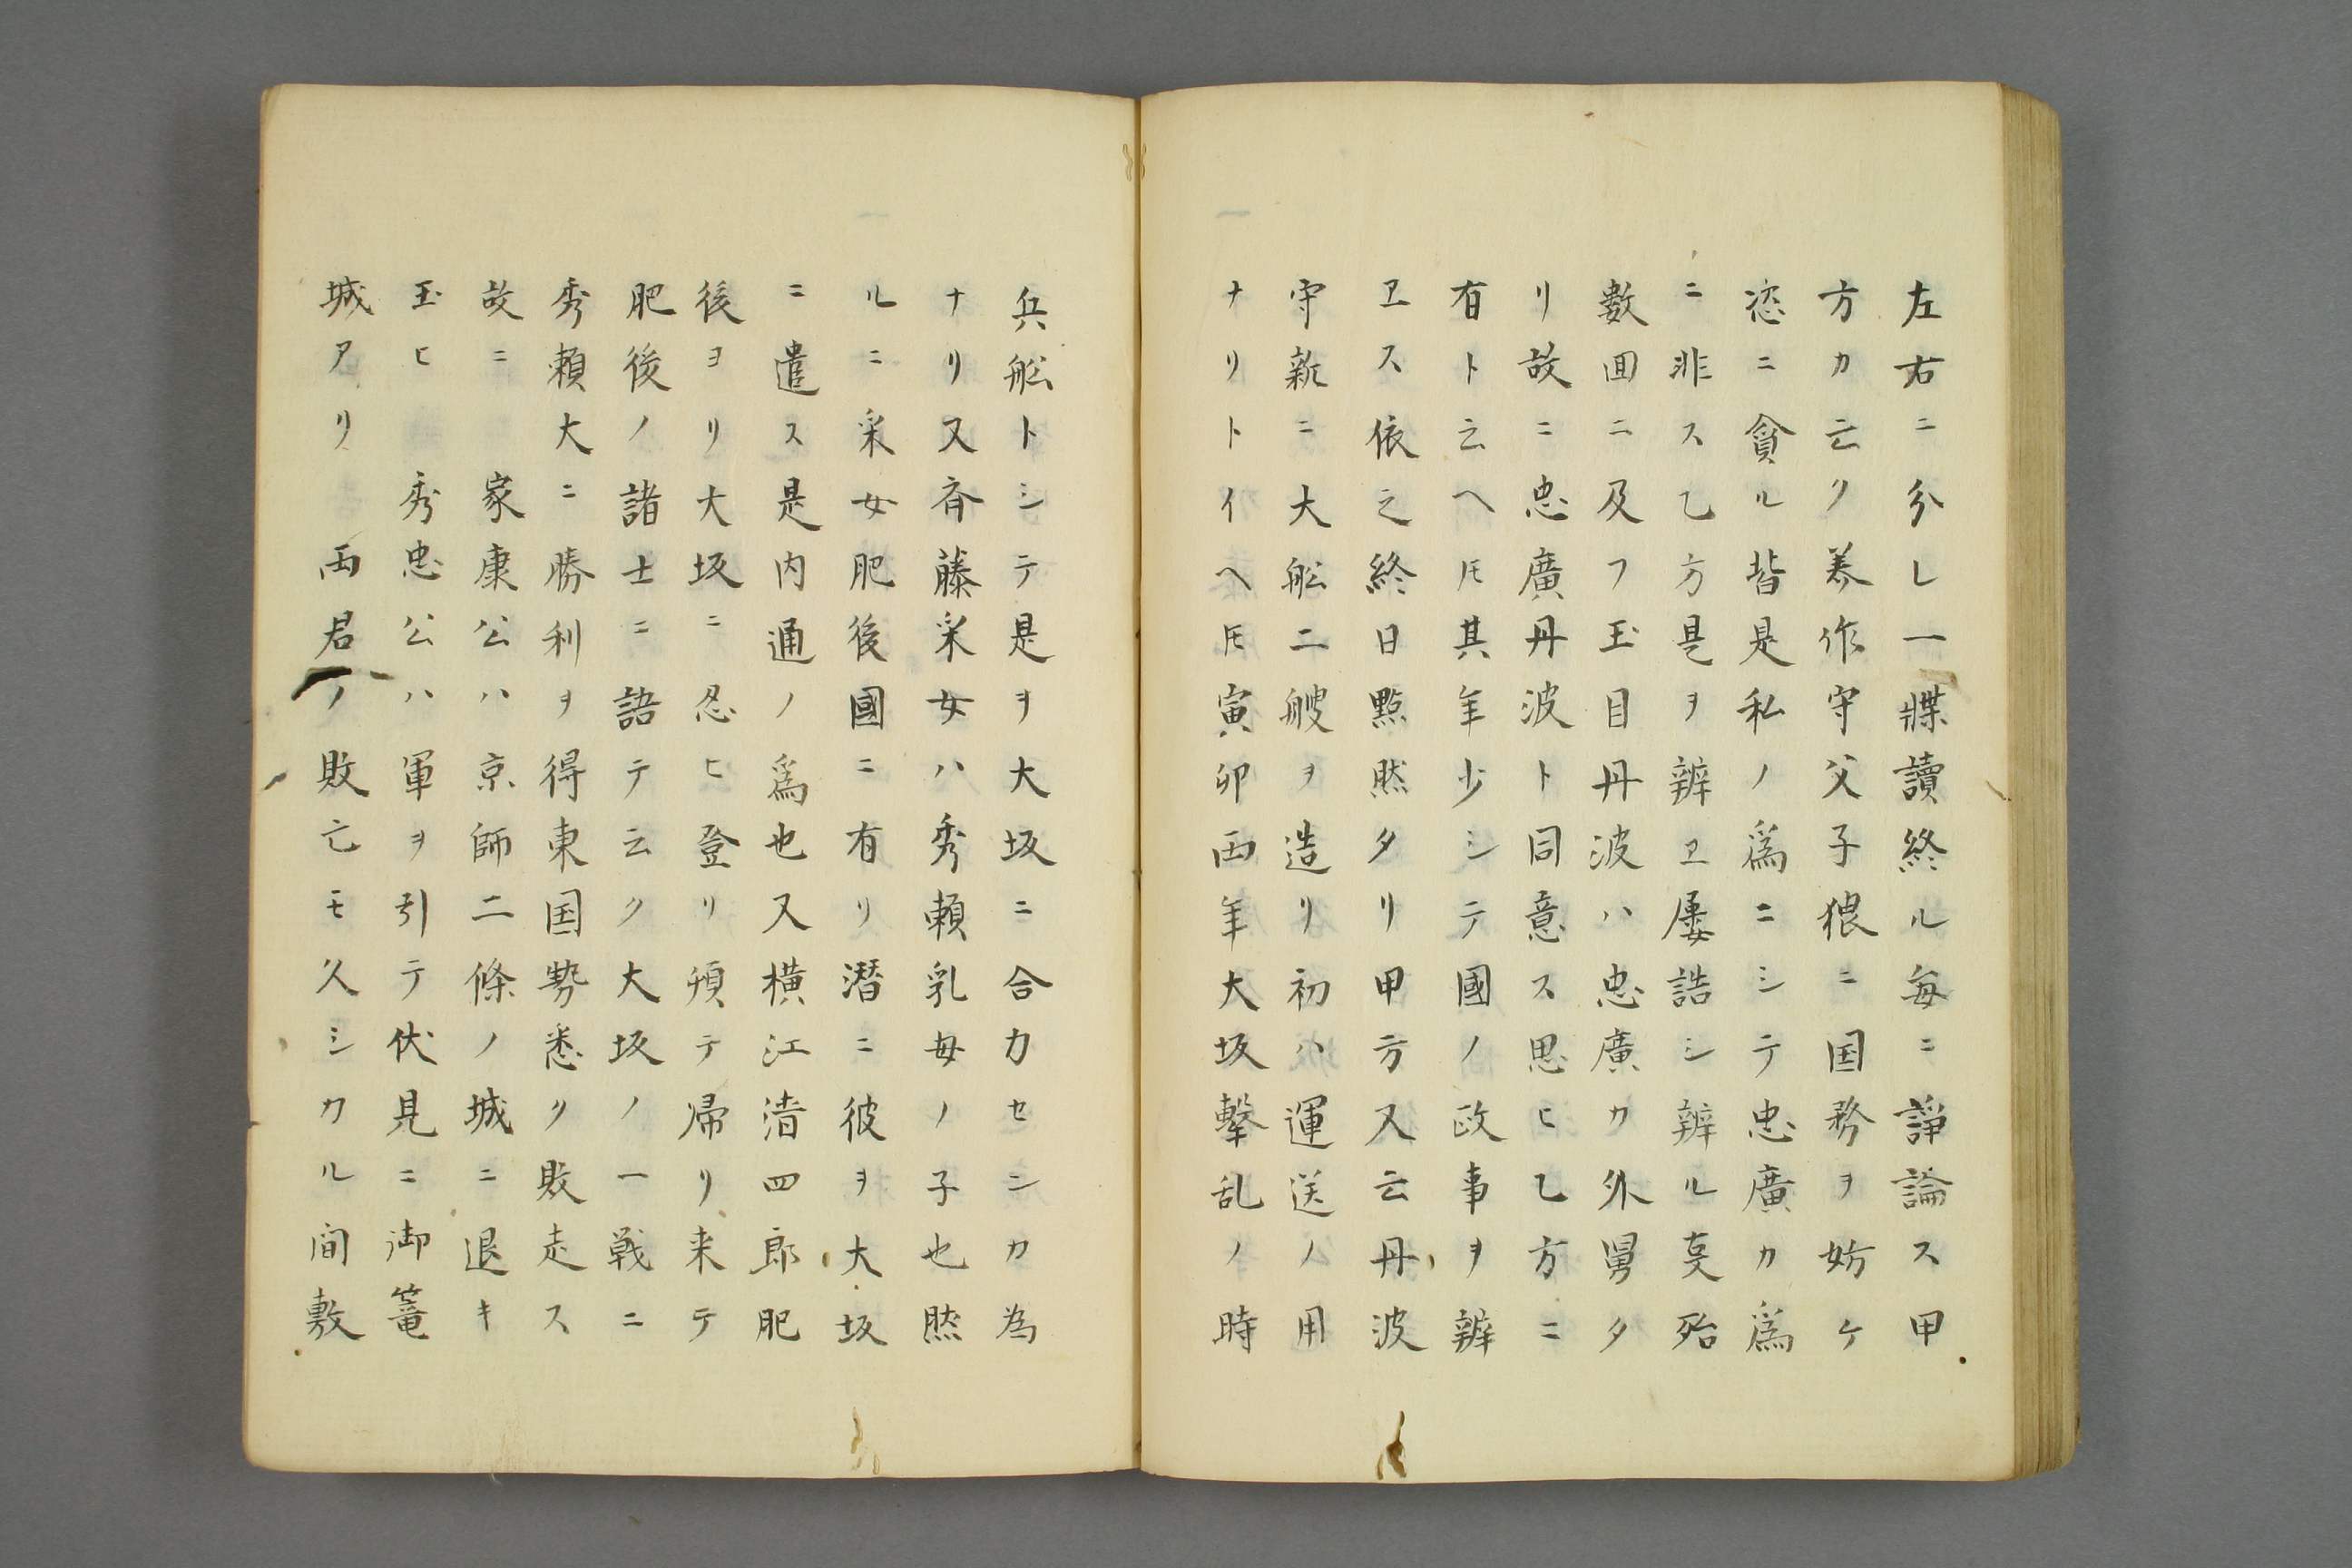 左右ニ分レ一牒讀終ル毎ニ諍論ス甲
方カ云ク美作守父子狼ニ国務ヲ妨ケ
恣ニ貪ル皆是私ノ爲ニシテ忠廣カ爲
ニ非ス乙方是ヲ辨ヱ屡誥シ辨ル㕝殆
數囬ニ及フ玉目丹波ハ忠廣カ外舅タ
リ故ニ忠廣丹波ト同意ス思ヒ乙方ニ
有ト云ヘ𪜈其年少シテ國ノ政事ヲ辨
ヱス依之終日黙然タリ甲方又云丹波
守新ニ大舩二艘ヲ造リ初ハ運送ノ用
ナリトイヘ𪜈寅卯両年大坂擊乱ノ時
兵舩トシテ是ヲ大坂ニ合力センカ為
ナリ又斉藤采女ハ秀頼乳母ノ子也然
ルニ采女肥後國ニ有リ潜ニ彼ヲ大坂
ニ遣ス是内通ノ爲也又横江清四郎肥
後ヨリ大坂ニ忍ヒ登リ頃テ帰リ来テ
肥後ノ諸士ニ語テ云ク大坂ノ一戦ニ
秀頼大ニ勝利ヲ得東国勢悉ク敗走ス
故ニ 家康公ハ京師二條ノ城ニ退キ
玉ヒ 秀忠公ハ軍ヲ引テ伏見ニ御篭
城アリ 両君ノ敗亡モ久シカル間敷